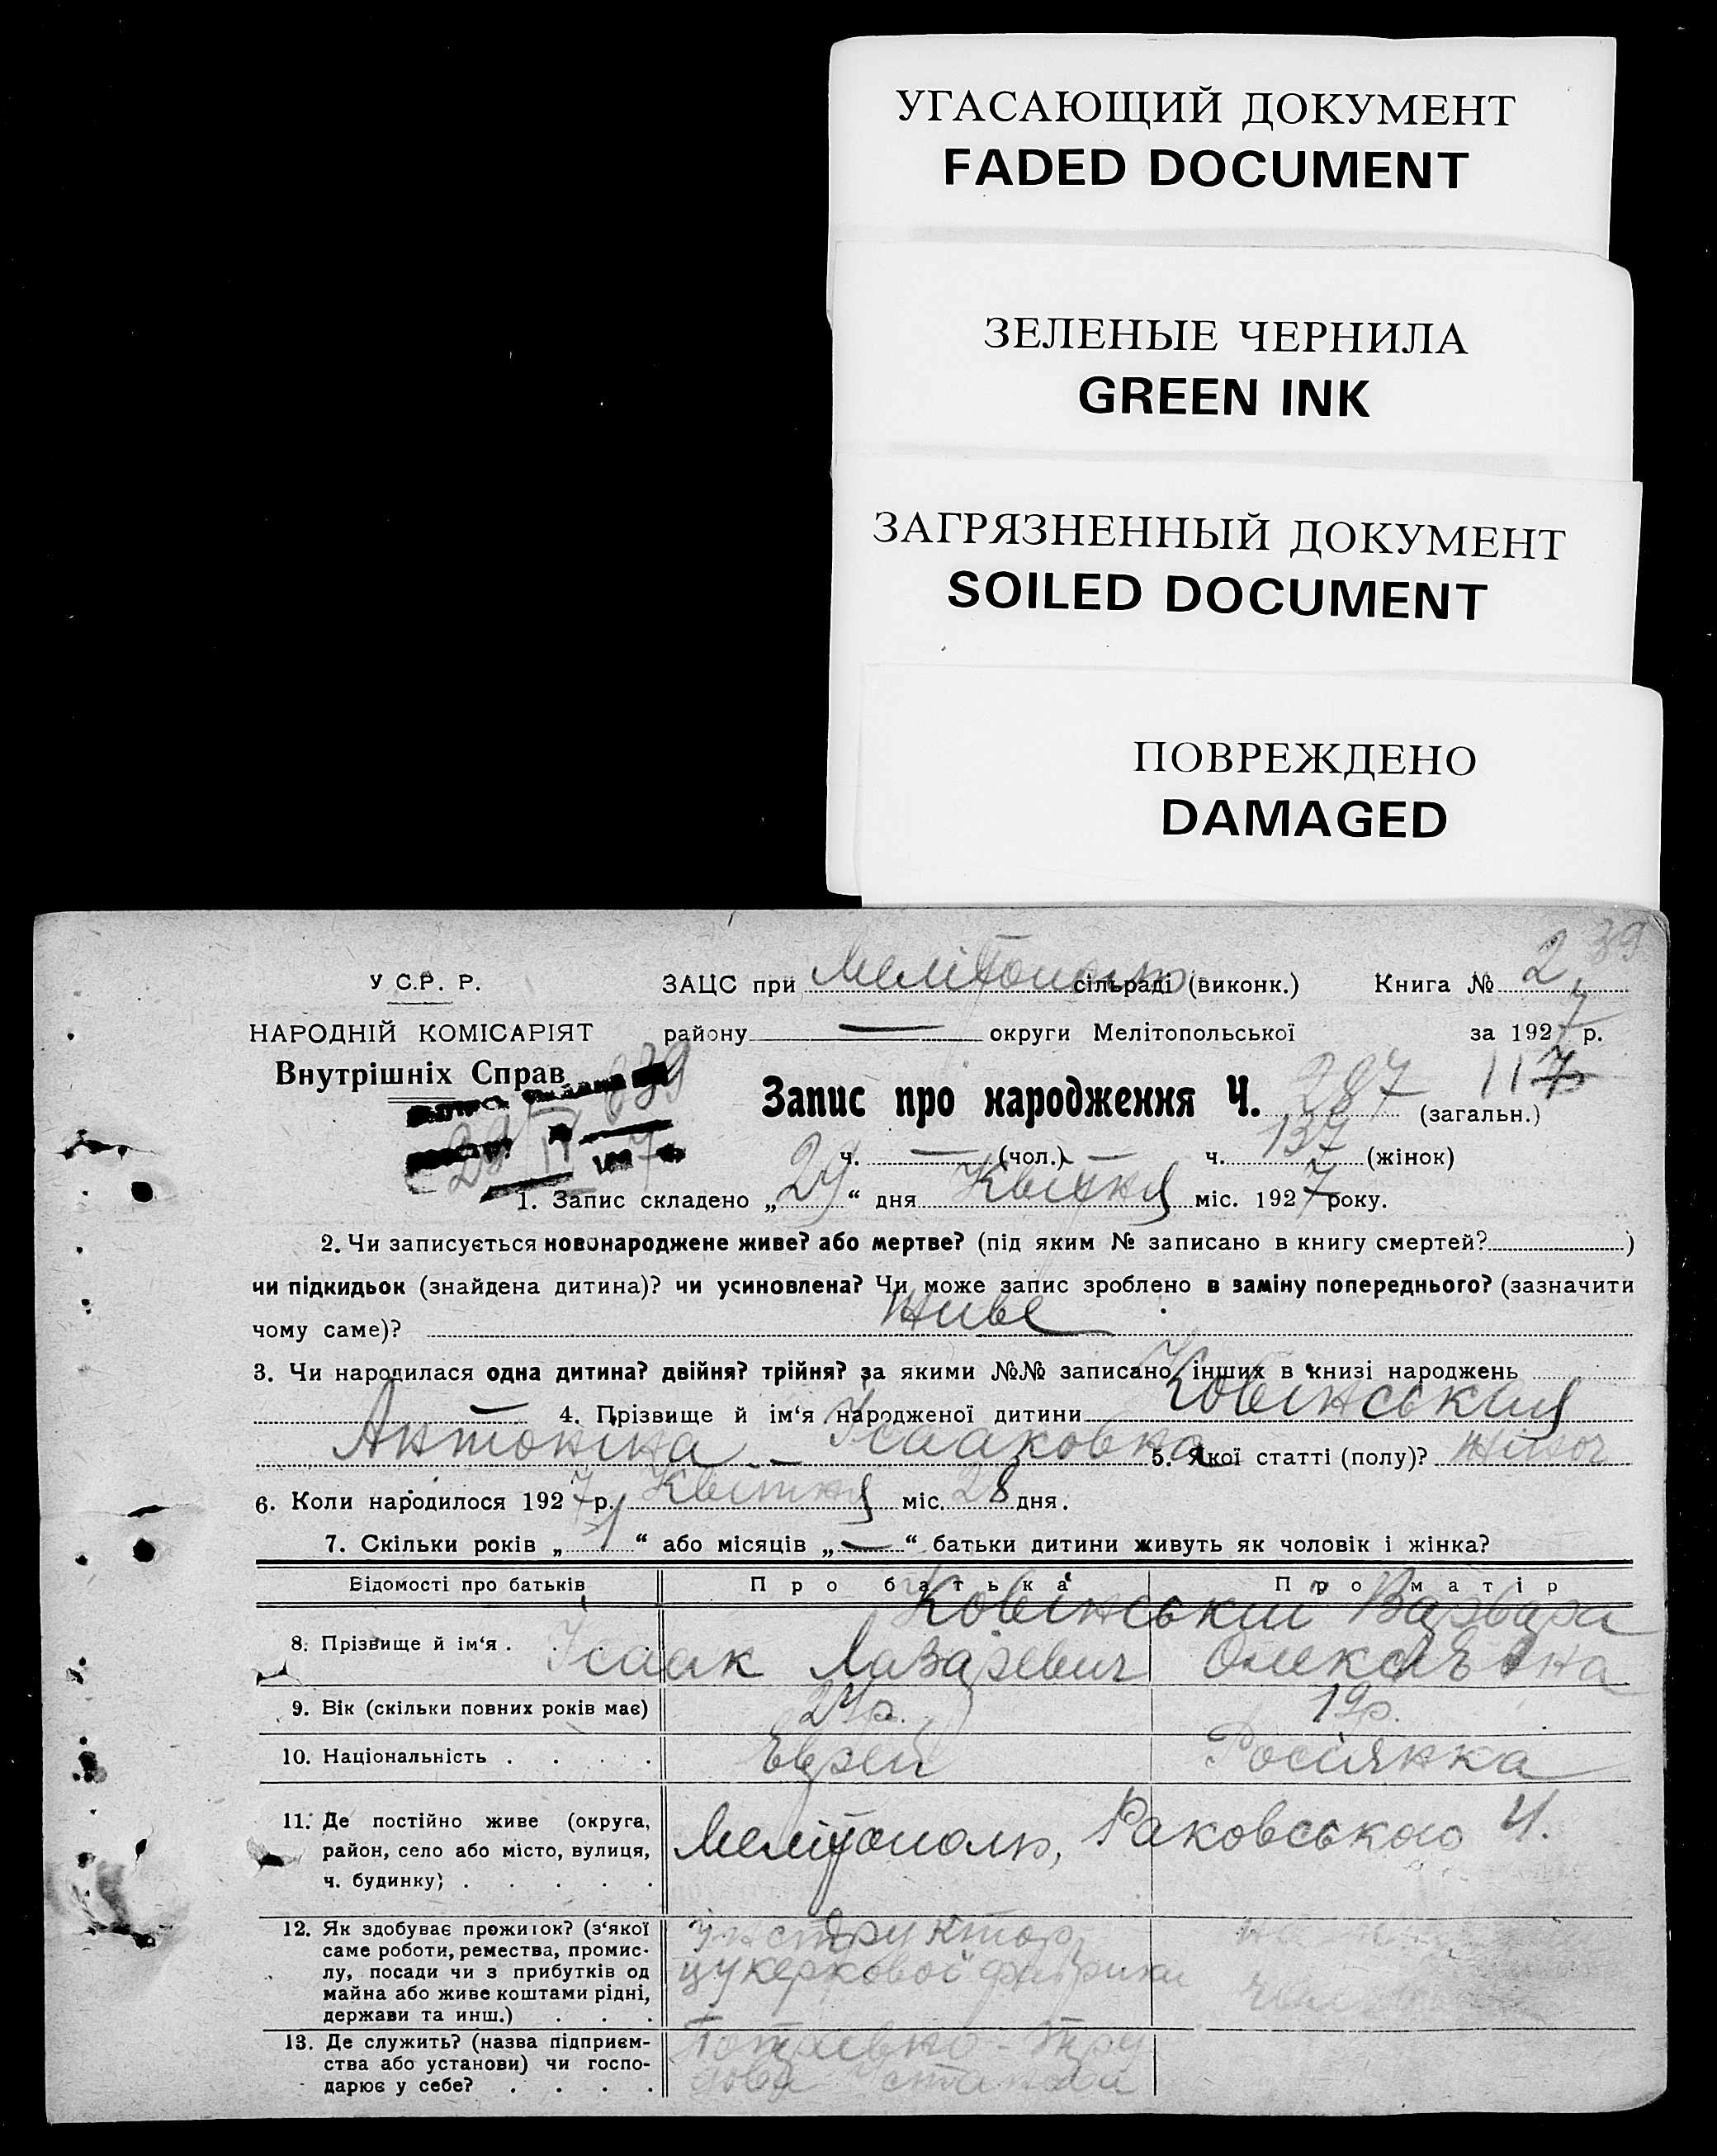 УГАСАЮЩИЙ ДОКУМЕНТ
FADED DOCUMENT
ЗЕЛЕНЫЕ ЧЕРНИЛА
GREEN INK
ЗАГРЯЗНЕННЫЙ ДОКУМЕНТ
SOILED DOCUMENT
ПОВРЕЖДЕНО
DAMAGED
39
У С.Р. Р. ЗАЦС при сільраді (виконк.) Книга № 2
НАРОДНІЙ КОМІСАРІЯТ району — округи Мелітопольської за 1927 р.
Внутрішніх Справ 839
Запис про народження Ч. 287 (загальн.) 117
29 IV 7 ч. — (чол.) — ч. 137 (жінок)
1. Запис складено „29“ дня Квітня міс. 1927 року.
2. Чи записується новонароджене живе? або мертве? (під яким № записано в книгу смертей? )
чи підкидьок (знайдена дитина)? чи усиновлена? Чи може запис зроблено в заміну попереднього? (зазначити
чому саме)? Живе
3. Чи народилася одна дитина? двійня? трійня? за якими №№ записано інших в книзі народжень
— 4. Прізвище й ім‘я народженої дитини Ковінськая
Антоніна Ісааковна 5. Якої статті (полу)? жіноч
6. Коли народилося 1927 р. Квітня міс. 28 дня.
7. Скільки років „1“ або місяців „—“ батьки дитини живуть як чоловік і жінка?
Відомості про батьків Про батька Про матір
8. Прізвище й ім‘я . Ковінський Варвара
Ісаак Лазаревич
9. Вік (скільки повних років має) 24р. 19р.
10. Національність . . . . Еврей Росіянка
11. Де постійно живе (округа,
район, село або місто, вулиця,
ч. будинку) . . . . .
Мелітополь, Раковського 4.
12. Як здобуває прожиток? (з‘якої
саме роботи, ремества, промис-
лу, посади чи з прибутків од
майна або живе коштами рідні,
держави та инш.) . . .
Інструктор
цукеркової фабрики
13. Де служить? (назва підприєм-
ства або установи) чи госпо-
дарює у себе? . . . .